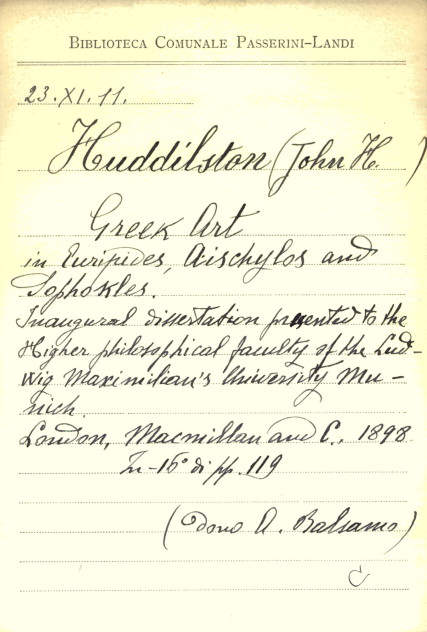 BIBLIOTECA COMUNALE PASSERINI-LANDI
23.XI.11.
Huddilston (John H. )
Greek Art
in Euripides, Aischylos and
Sophokles.
Inaugural dissertation presented to the
Higher philosophical faculty of the Lud-
wig Maximilian's University Mu-
nich.
London, Macmillan and C., 1898
In-16° di pp. 119
(dono A. Balsamo)
C